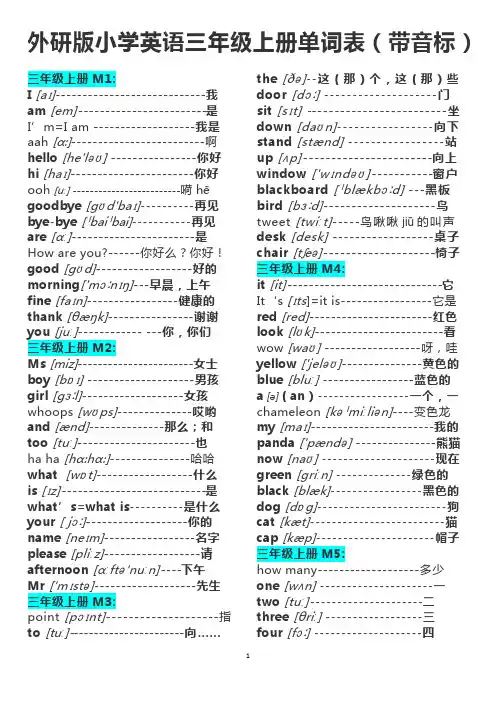 外研版小学英语三年级上册单词表（带音标）
三年级上册 M1:
I [aɪ]----------------------------我
am [em]------------------------是
I’m=I am -------------------我是
aah [ɑː]-------------------------啊
hello [he'ləʊ] ----------------你好
hi [haɪ]-----------------------你好
ooh [uː] -------------------------嗬 hē
goodbye [ɡʊd'baɪ]----------再见
bye-bye ['bai'bai]-----------再见
are [ɑː]-----------------------是
How are you?------你好么？你好！
good [ɡʊd]------------------好的
morning['mɔːnɪŋ]---早晨，上午
fine [faɪn]-----------------健康的
thank [θæŋk]----------------谢谢
you [juː]------------ ---你，你们
三年级上册 M2:
Ms [miz]----------------------女士
boy [bɒɪ] --------------------男孩
girl [gɜːl]-------------------女孩
whoops [wʊps]--------------哎哟
and [ænd]-------------那么；和
too [tuː]----------------------也
ha ha [hɑːhɑː]---------------哈哈
what [wɒt]------------------什么
is [ɪz]---------------------------是
what’s=what is----------是什么
your [ˈjɔː]-------------------你的
name [neɪm]-----------------名字
please [pliːz]------------------请
afternoon [ɑːftə'nuːn]----下午
Mr ['mɪstə]-------------------先生
三年级上册 M3:
point [pɔɪnt]--------------------指
to [tuː]----------------------向……
the [ðə]--这（那）个，这（那）些
door [dɔː] ---------------------门
sit [sɪt] --------------------------坐
down [daʊn]------------------向下
stand [stænd] ------------------站
up [ʌp]------------------------向上
window ['wɪndəʊ]-----------窗户
blackboard ['blækbɔːd] ---黑板
bird [bɜːd]---------------------鸟
tweet [twiːt]-----鸟啾啾 jiū 的叫声
desk [desk] -------------------桌子
chair [tʃeə]--------------------椅子
三年级上册 M4:
it [it]-----------------------------它
It‘s [ɪts]=it is-----------------它是
red [red]-----------------------红色
look [lʊk]-----------------------看
wow [waʊ] ----------------呀，哇
yellow ['jeləʊ]--------------黄色的
blue [bluː] -----------------蓝色的
a [ə] (an) -----------------一个，一
chameleon [kə'miːliən]----变色龙
my [maɪ]-----------------------我的
panda ['pændə] ---------------熊猫
now [naʊ] --------------------现在
green [griːn] --------------绿色的
black [blæk]-----------------黑色的
dog [dɒg]------------------------狗
cat [kæt]-------------------------猫
cap [kæp]----------------------帽子
三年级上册 M5:
how many-------------------多少
one [wʌn] ---------------------一
two [tuː]---------------------二
three [θriː] ------------------三
four [fɔː] --------------------四
1